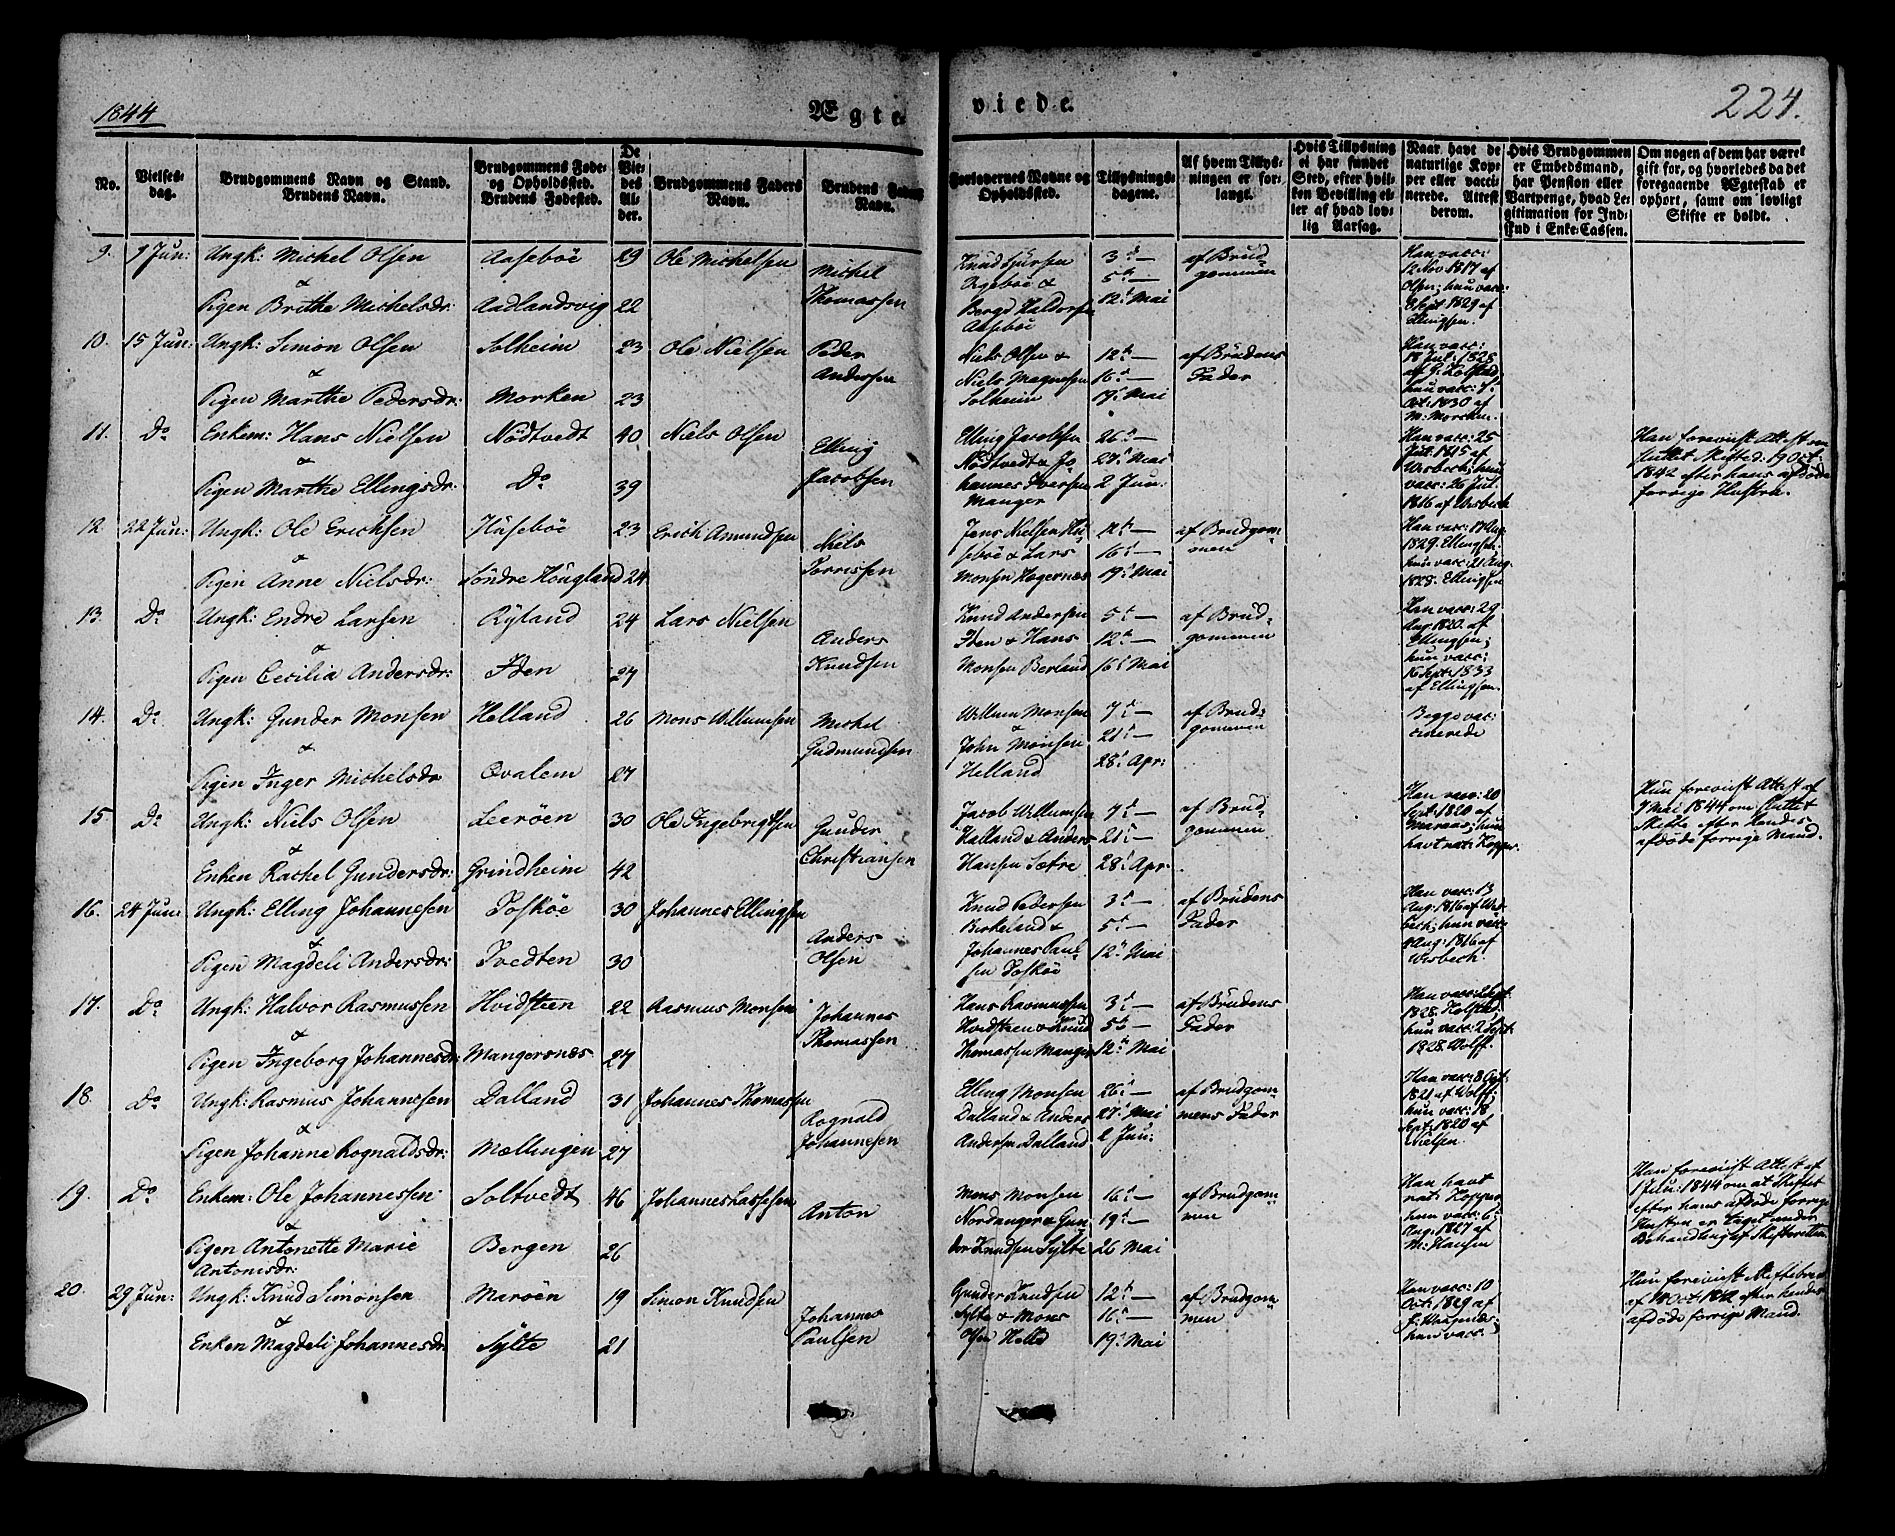 1844
Ægte viede.
224.
No.
Vielses-dag.
Brudgommens Navn og Stand.
Brudens Navn.
Brudgommens Føde- og Opholdssted.
Brudens Fødested.
De Viedes Alder.
Brudgommens Faders Navn.
Brudens Faders Navn.
Forlovernes Navne og Opholdssted.
Tillysnings-dagene.
Af hvem Tillysningen er forlangt.
Hvis Tillysning ei har fundet Sted, efter hvilken Bevilling eller af hvad lovlig Aarsag.
Naar havt de naturlige Kopper eller vaccinerede. Attest derom.
Hvis Brudgommen er Embedsmand, har Pension eller Vartpenge, hvad Legitimation for Indskud i Enke-Cassen.
Om nogen af dem har været gift før, og hvorledes da det foregaaende Ægteskab er ophørt, samt om lovligt Skifte er holdt.
9. 9 Jun: Ungk: Michel Olsen Aasebøe 29 Ole Michelsen Michel Thomassen
& Pigen Brithe Michelsdr: Aadlandsvig 22
Knud Sjursen Ygebøe & Berge Haldorsen Aasebøe
3d — 5te — 12t Mai
af Brudgommen
Han vacc: 12 Nov: 1817 af Olsen; hun vacc: Sept: 1829 af Ellingsen.
10. 15 Jun: Ungk: Simon Olsen Solheim 23 Ole Nielsen Peder Andersen
& Pigen Marthe Pedersdr: Morken 23
Niels Olsen & Niels Magnesen Solheim
12t — 16t — 19t Mai
af Brudens Fader
Han vacc: 18 Jul: 1828 af G. Holstad, hun vacc: Oct: 1830 af M: Morken.
11. Do Enkem: Hans Nielsen Nödtvedt 40 Niels Olsen Elling Jacobsen
& Pigen Marthe Ellingsdr: Do 39
Elling Jacobsen Nödtvedt & Johannes Iversen Manger
26t — 27t Mai 2 Jun:
Han vacc: 25 Jul: 1815 af Wesbech; hun vacc: 26 Jul: 1816 af Wesbech
Han foreviist Attest om sluttet Skifte d: 19 Oct: 1842 efter hans afdøde forrige Hustrue.
12. 22 Jun: Ungk: Ole Erichsen Husebøe 23 Erich Amundsen Niels Torrissen
& Pigen Anne Nielsdr: Söndre Hougland 24
Jens Nielsen Husebøe & Lars Monsen Hagernæs
12t — 16t — 19t Mai
af Brudgommen
Han vacc: 17 Aug: 1829. Ellingsen. hun vacc: 21 Aug. 1828. Ellingsen
13. Do Ungk: Endre Larsen Ryland 24 Lars Nielsen Anders Knudsen
& Pigen Cecilia Andersdr: Iden 27
Knud Andersen Iden & Hans Monsen Berland
5t — 12t — 16t Mai
af Brudgommen
Han vacc: 29 Aug: 1820. af Ellingsen; hun vacc: 16 Sept: 1833 af Ellingsen.
14. Do Ungk: Gunder Monsen Helland 26 Mons Willumsen Michel Gudmundsen
& Pigen Inger Michelsdr Qvalem 27
Willum Monsen & John Monsen Helland
7t — 21t — 28t Apr:
af Brudgommen
Begge vaccinerede
15 Do Ungk: Niels Olsen Leeröen 30 Ole Ingebrigtsen Gunder Christiansen
& Enken Rachel Gundersdr: Grindheim 42
Jacob Willumsen Halland & Anders Hansen Sætre
7t — 21t — 28t Apr.
af Brudgommen
Han vacc: 20 Sept: 1820 af hun havt nat: Kopper.
Hun foreviist Attest af 7 Mai 1844 om sluttet Skifte efter hendes afdøde forrige Mand.
16. 24 Jun: Ungk: Elling Johannesen Toskøe 30 Johannes Ellingsen Anders Olsen
& Pigen Magdeli Andersdr: Tvedten 30
Knud Pedersen Birkeland & Johannes Paulsen Toskøe
3d — 5t — 12t Mai
af Brudens Fader
Han vacc: 13 Aug: 1816 af Wesbech; hun vacc: Aug: 1816 af Wesbech.
17. Do Ungk: Halvor Rasmussen Hvidsteen 22 Rasmus Monsen Johannes Thomassen
& Pigen Ingeborg Johannesdr: Mangersnæs 27
Hans Rasmussen Hvidsteen & Knud Thomassen Manger
3d — 5te — 12te Mai
af Brudens Fader
Han vacc: Sept: 1828. Holstad. hun vacc: 2 Sept: 1828. Wolff.
18. Do Ungk: Rasmus Johannesen Dalland 31 Johannes Thomassen Rognald Johannesen
& Pigen Johanne Rognaldsdr: Mællingen 27
Elling Monsen Dalland & Anders Andersen Dalland
26t — 27t Mai 2 Jun:
af Brudgommens Fader
Han vacc: 8 Oct: 1821 af Wolff; hun vacc: 18 Sept: 1820 af Nielsen.
19. Do Enkem: Ole Johannessen Soltvedt 46 Johannes Lassesen Anton
& Pigen Antonette Marie Antonisdr: Bergen 26
Mons Monsen Nordanger & Gunder Knudsen Sylte
16t — 19t — 26 Mai
af Brudgommen
Han havt nat: Kopper hun vacc: 6 Aug: 1827 af M: Hansen
Han foreviist Attest af 1 Jun: 1844 om at Skiftet efter hans afdøde forrige Hustru er taget under Behandling af Skifteretten
20. 29 Jun: Ungk: Knud Simonsen Maröen 19 Simon Knudsen Johannes Paulsen
& Enken Magdeli Johannesdr Sylte 21
Gunder Knudsen Sylte & Mons Olsen Helle
12t — 16t — 19t Mai
af Brudgommen
Han vacc: 10 Oct: 1829 af hun vacc:
Hun foreviist Skiftebrev af 18 Oct: 1842 efter hendes afdøde forrige Mand.